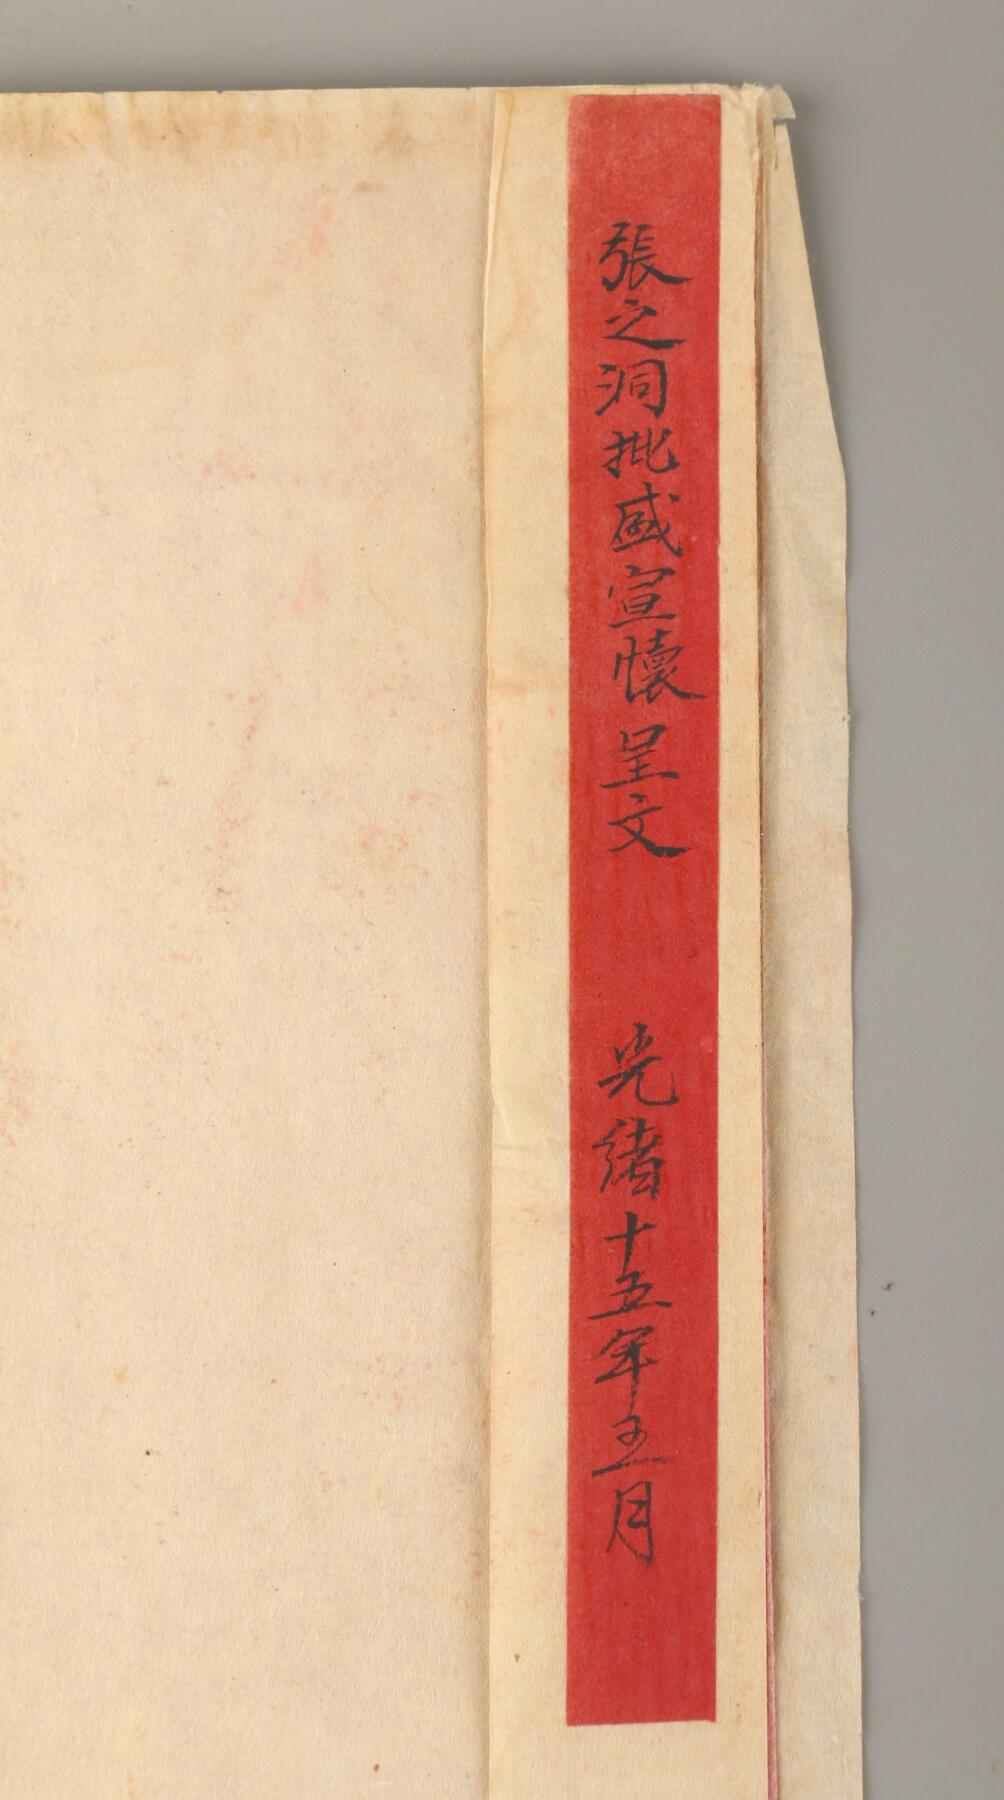 張之洞批盛宣懷呈文 光緒十五年五月